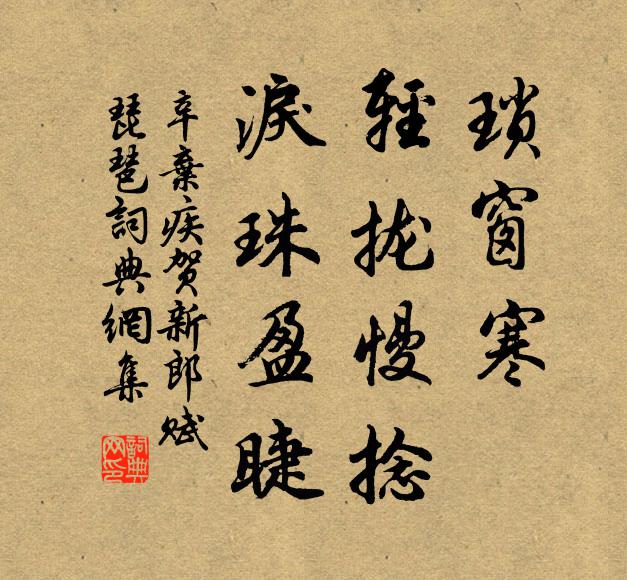 瑣窗寒
輕拢慢捻
淚珠盈睫
辛棄疾賀新郎賦
琵琶詞典網集
詞典网印